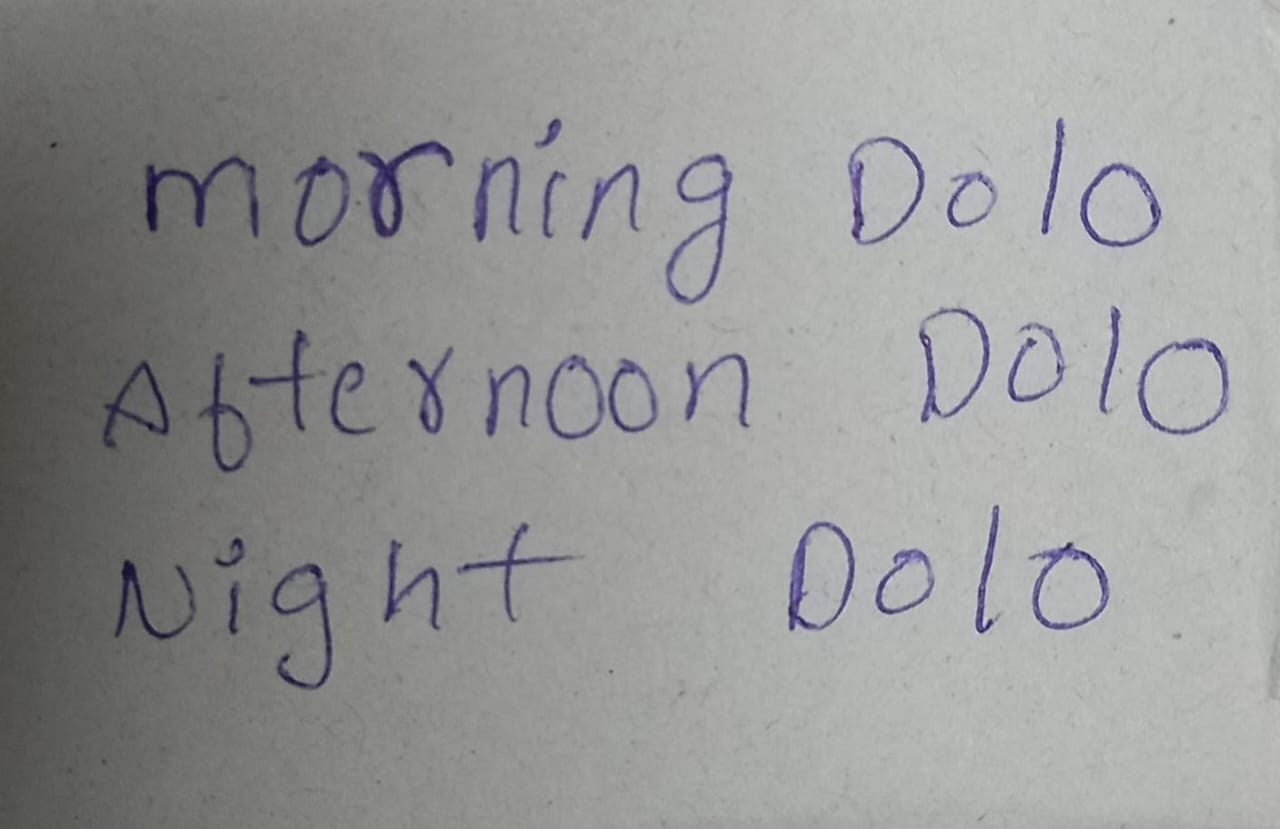 morning Dolo
Afternoon Dolo
Night Dolo